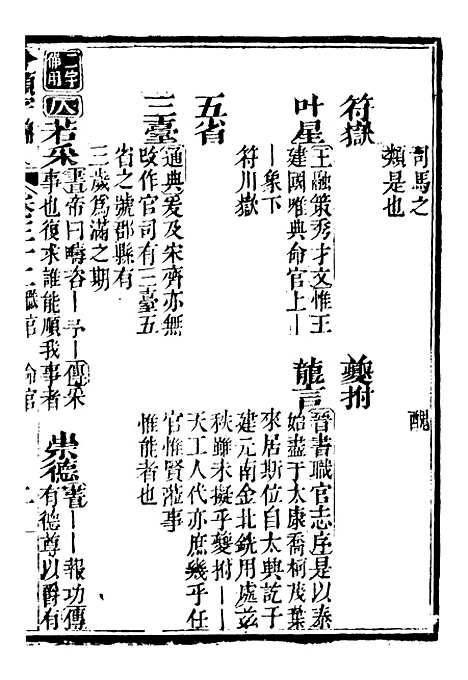 司馬之
類是也
醜
符嶽
夔拊
叶星
王融策秀才文惟王
建國唯典命官上丨
丨象下
符川嶽
龍言
晉書職官志序是以泰
始盡于太康喬柯茂葉
來居斯位自太興訖于
建元南金北銑用處茲
秋雖未擬乎夔拊丨丨
天工人代亦庶幾乎任
官惟賢蒞事
惟能者也
五省
三臺
通典爰及宋齊亦無
改作官司有三臺五
省之號郡縣有
三歲為滿之期
二字
備用
八
若采
書帝曰疇咨丨予丨傳采
事也復求誰能順我事者
崇德
書丨丨報功傳
有德尊以爵有